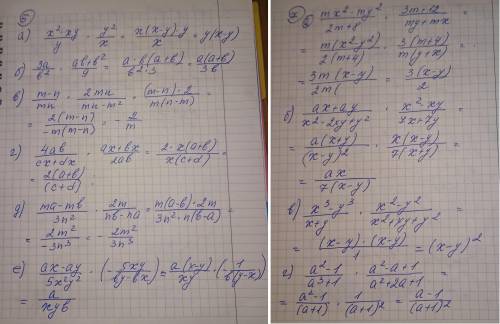 ⑤
а) (x²-xy)/y · y²/x = x(x-y)y/x = y(x-y)
б) 3a/b² · (ab+b²)/9 = a·b(a+b)/(b²·3) = a(a+b)/(3b)
в) (m-n)/(mn) · 2mn/(mn-m²) = (m-n)·2/(m(n-m)) =
= 2(m-n)/(-m(m-n)) = -2/m
г) 4ab/(cx+dx) · (ax+bx)/(2ab) = 2·x(a+b)/(x(c+d)) =
= 2(a+b)/(c+d)
д) (ma-mb)/(3n²) · 2m/(nb-na) = m(a-b)·2m/(3n²·n(b-a)) =
= 2m²/(-3n³) = -2m²/(3n³)
е) (ax-ay)/(5x²y²) · (-5xy/(by-bx)) = a(x-y)/(xy) · (-1/(b(y-x))) =
= a/(xyb)
а) (mx²-my²)/(2m+8) · (3m+12)/(my+mx) =
= m(x²-y²)/(2(m+4)) · 3(m+4)/(m(y+x)) =
= 3m(x-y)/(2m) = 3(x-y)/2
б) (ax+ay)/(x²-2xy+y²) · (x²-xy)/(7x+7y) =
= a(x+y)/(x-y)² · x(x-y)/(7(x+y)) =
= ax/(7(x-y))
в) (x³-y³)/(x+y) · (x²-y²)/(x²+xy+y²) =
= (x-y)·(x-y)/1 = (x-y)²
г) (a²-1)/(a³+1) · (a²-a+1)/(a²+2a+1) =
= (a²-1)/(a+1) · 1/(a+1)² = (a-1)/(a+1)²